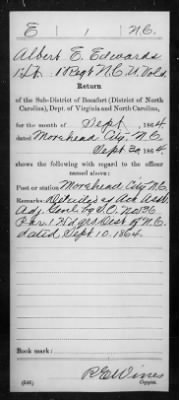 E | 1 | N.C.
Albert E. Edwards
1 Lt., 1 Regt N.C. U. Vols.
Return
of the Sub-District of Beaufort (District of North
Carolina), Dept. of Virginia and North Carolina,
for the month of Sept, 1864
dated Morehead City N.C.
Sept 30, 1864,
shows the following with regard to the officer
named above:
Post or station Morehead City N.C.
Remarks: Detached as Act Asst.
Adj. Genl. by S.O. No 136
Par. 1
dated Sept. 10. 1864.
Book mark:
Copyist.